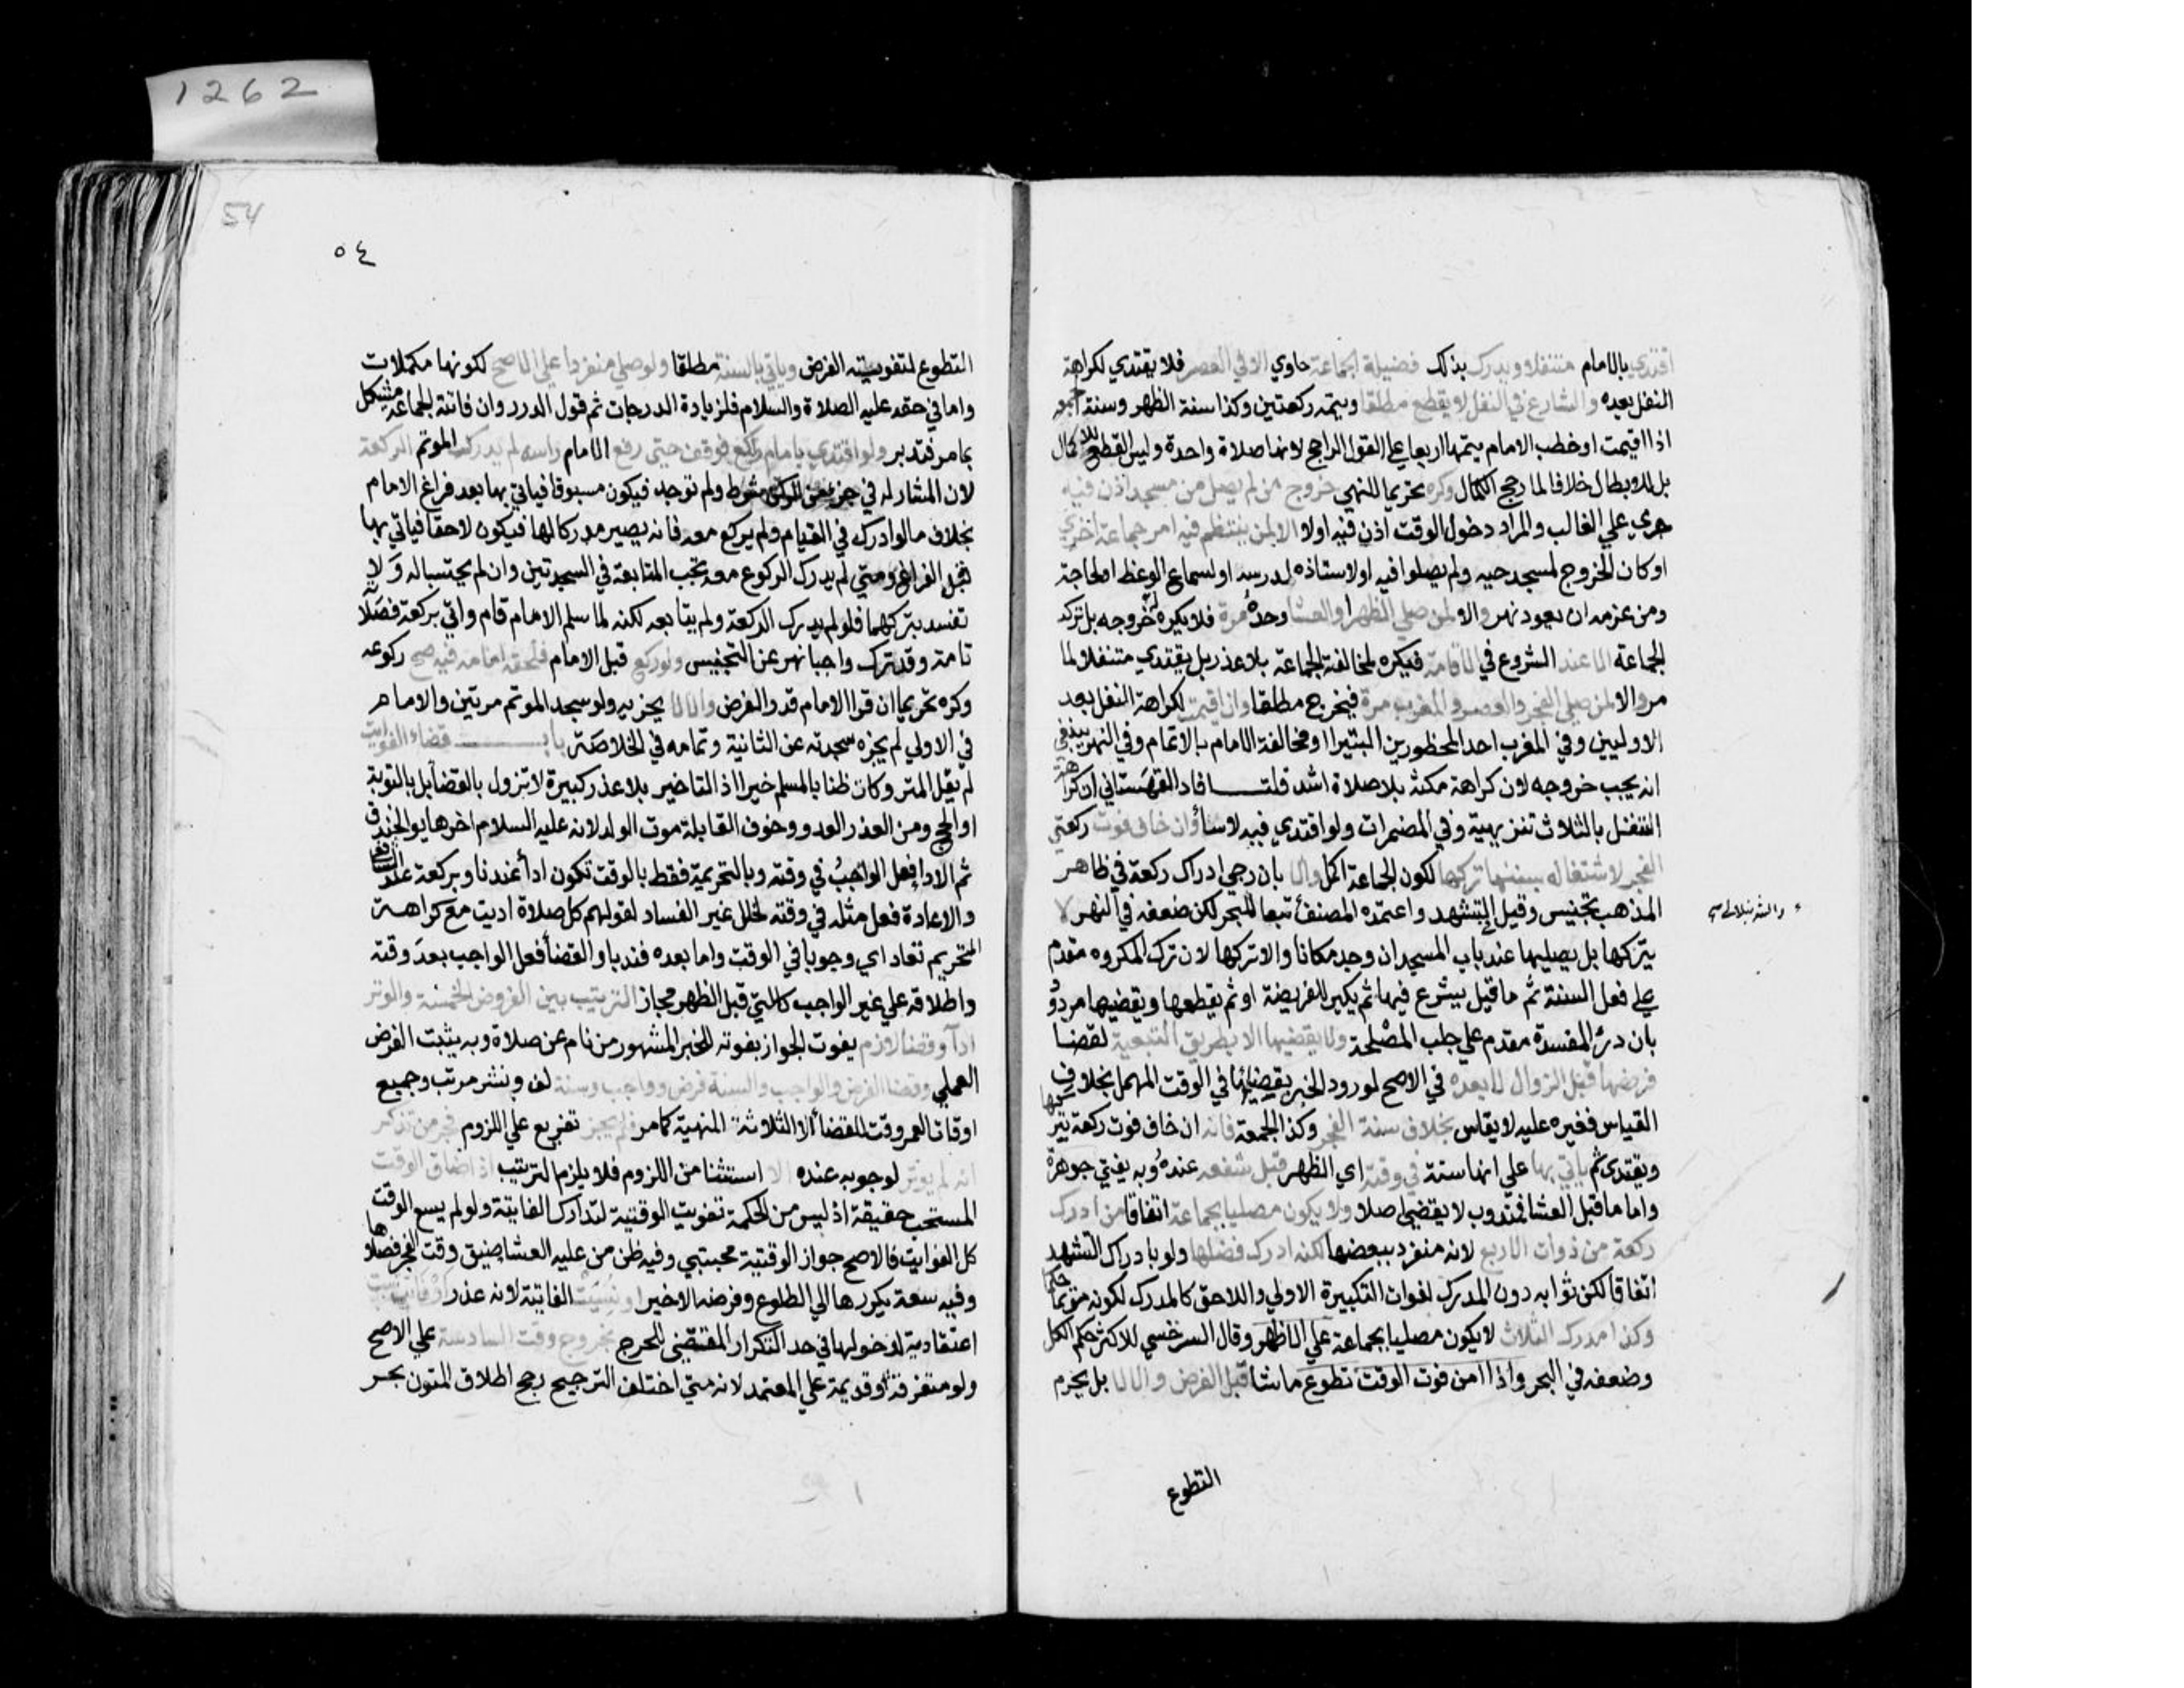 اقتدي بالامام متنفلا ويدرك بذلك فضيلة الجماعة حاوي الا في العصر فلا يقتدي لكراهة
النفل بعده والشارع في النفل لا يقطع مطلقا ويتمه ركعتين وكذا سنة الظهر وسنة الجمعة
اذا اقيمت او خطب الامام يتمها اربعا علي القول الراجح لانها صلاة واحدة وليس القطع للاكمال
بل للابطال خلافا لما رجح الكمال وكره تحريما للنهي خروج من لم يصل من مسجد اذن فيه
جري علي الغالب والمراد دخول الوقت اذن فيه اولا الا لمن ينتظم فيه امر جماعة اخري
او كان الخروج لمسجد حيه ولم يصلوا فيه او لاستاذه لدرسه او لسماع الوعظ او لحاجة
ومن عزمه ان يعود نهر والا لمن صلي الظهر او العشا وحده مرة فلا يكره خروجه بل تركه
الجماعة الا عند الشروع في الاقامة فيكره لمخالفة الجماعة بلا عذر بل يقتدي متنفلا لما
مر والا لمن صلي الفجر والعصر والمغرب مرة فيخرج مطلقا وان اقيمت لكراهة النفل بعد
الاوليين وفي المغرب احد المحظورين البتيرا او مخالفة الامام بالاتمام وفي النهر ينبغي
انه يجب خروجه لان كراهة مكثه بلا صلاة اشد قلت افاد القهستاني ان كراهة
التنفل بالثلاث تنزيهية وفي المضمرات ولو اقتدي فيه لاسا وان خاف فوت ركعتي
الفجر لاشتغاله بسنتها تركها لكون الجماعة اكمل والا بان رجي ادراك ركعة في ظاهر
المذهب تجنيس وقيل التشهد واعتمده المصنف تبعا للبحر لكن ضعفه في النهر لا
والشرنبلالي
يتركها بل يصليها عند باب المسجد ان وجد مكانا والا تركها لان ترك المكروه مقدم
علي فعل السنة ثم ما قيل يشرع فيها ثم يكبر للفريضة او ثم يقطعها ويقضيها مردود
بان درء المفسدة مقدم علي جلب المصلحة ولا يقضيها الا بطريق التبعية لقضا
فرضها قبل الزوال لا بعده في الاصح لورود الخبر بقضائها في الوقت المهمل بخلاف
القياس فغيره عليه لا يقاس بخلاف سنة الفجر وكذا الجمعة فانه ان خاف فوت ركعة يتركها
ويقتدي ثم ياتي بها علي انها سنة في وقته اي الظهر قبل شفعه عنده وبه يفتي جوهرة
واما ما قبل العشا فمندوب لا يقضي اصلا ولا يكون مصليا بجماعة اتفاقا من ادرك
ركعة من ذوات الاربع لانه منفرد ببعضها لكنه ادرك فضلها ولو بادراك التشهد
اتفاقا لكن ثوابه دون المدرك لفوات التكبيرة الاولي واللاحق كالمدرك لكونه مؤتما حكما
وكذا مدرك الثلاث لا يكون مصليا بجماعة علي الاظهر وقال السرخسي للاكثر حكم الكل
وضعفه في البحر واذا امن فوت الوقت تطوع ما شا قبل الفرض والا لا بل يحرم
التطوع
1262
54
٥٤
التطوع لتفويته الفرض وياتي بالسنة مطلقا ولو صلي منفردا علي الاصح لكونها مكملات
واما في حقه عليه الصلاة والسلام فلزيادة الدرجات ثم قول الدرر وان فاتته الجماعة مشكل
بما مر فتدبر ولو اقتدي بامام راكع فوقف حتي رفع الامام راسه لم يدرك المؤتم الركعة
لان المشاركة في جزء من الركن شرط ولم توجد فيكون مسبوقا فياتي بها بعد فراغ الامام
بخلاف ما لو ادركه في القيام ولم يركع معه فانه يصير مدركا لها فيكون لاحقا فياتي بها
قبل الفراغ ومتي لم يدرك الركوع معه تجب المتابعة في السجدتين وان لم يحتسبا له ولا
تفسد بتركهما فلو لم يدرك الركعة ولم يتابعه لكنه لما سلم الامام قام واتي بركعة فصلاته
تامة وقد ترك واجبا نهر عن التجنيس ولو ركع قبل الامام فلحقه امامه فيه صح ركوعه
وكره تحريما ان قرا الامام قدر الفرض والا لا يجزيه ولو سجد المؤتم مرتين والامام
في الاولي لم يجزه سجدته عن الثانية وتمامه في الخلاصة باب قضاء الفوايت
لم يقل المتروكات ظنا بالمسلم خيرا اذ التاخير بلا عذر كبيرة لا تزول بالقضا بل بالتوبة
او الحج ومن العذر العدو وخوف القابلة موت الولد لانه عليه السلام اخرها يوم الخندق
ثم الادا فعل الواجب في وقته وبالتحريمة فقط بالوقت تكون ادا عندنا وبركعة عند الشافعي
والاعادة فعل مثله في وقته لخلل غير الفساد لقولهم كل صلاة اديت مع كراهة
التحريم تعاد اي وجوبا في الوقت واما بعده فندبا والقضا فعل الواجب بعد وقته
واطلاقه علي غير الواجب كالتي قبل الظهر مجاز الترتيب بين الفروض الخمسة والوتر
ادا وقضا لازم يفوت الجواز بفوته للخبر المشهور من نام عن صلاة وبه يثبت الفرض
العملي وقضا الفرض والواجب والسنة فرض وواجب وسنة لف ونشر مرتب وجميع
اوقات العمر وقت للقضا الا الثلاثة المنهية كما مر فلم يجز تفريع علي اللزوم فجر من تذكر
انه لم يوتر لوجوبه عنده الا استثنا من اللزوم فلا يلزم الترتيب اذا ضاق الوقت
المستحب حقيقة اذ ليس من الحكمة تفويت الوقتية لتدارك الفايتة ولو لم يسع الوقت
كل الفوايت فالاصح جواز الوقتية مجتبي وفيه ظن من عليه العشا ضيق وقت الفجر فصلاها
وفيه سعة يكررها الي الطلوع وفرضه الاخير او نسيت الفائتة لانه عذر او فاتت ست
اعتقادية لدخولها في حد التكرار المقتضي للحرج بخروج وقت السادسة علي الاصح
ولو متفرقة او قديمة علي المعتمد لانه متي اختلف الترجيح رجح اطلاق المتون بحر